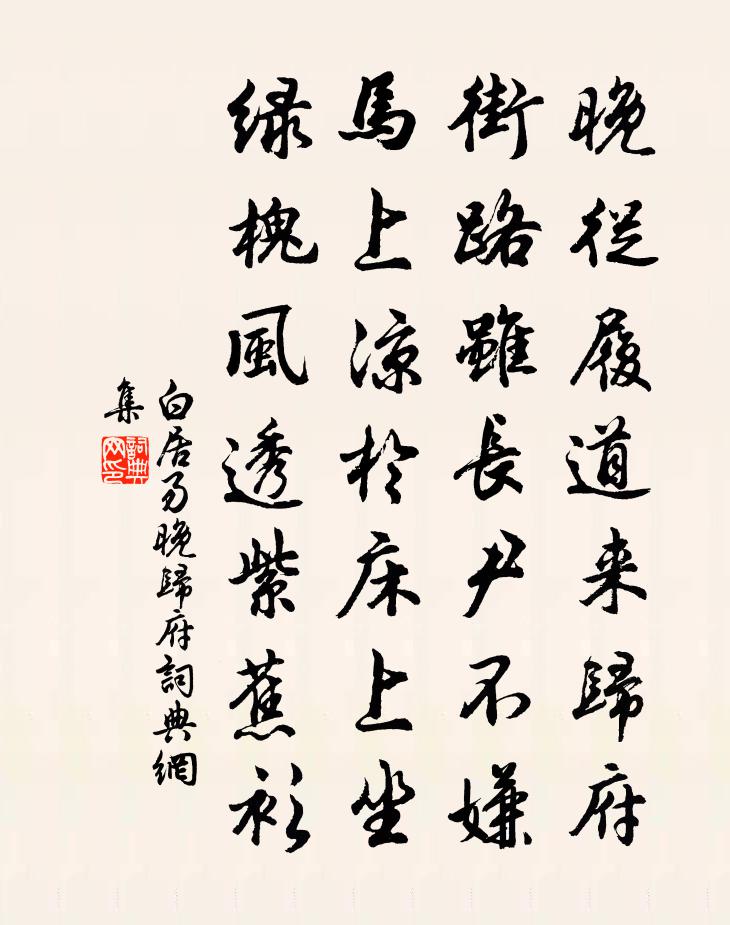 晚從履道来歸府
街路雖長尹不嫌
馬上凉於床上坐
绿槐風透紫蕉衫
白居易晚歸府詞典網
集
詞典
网印